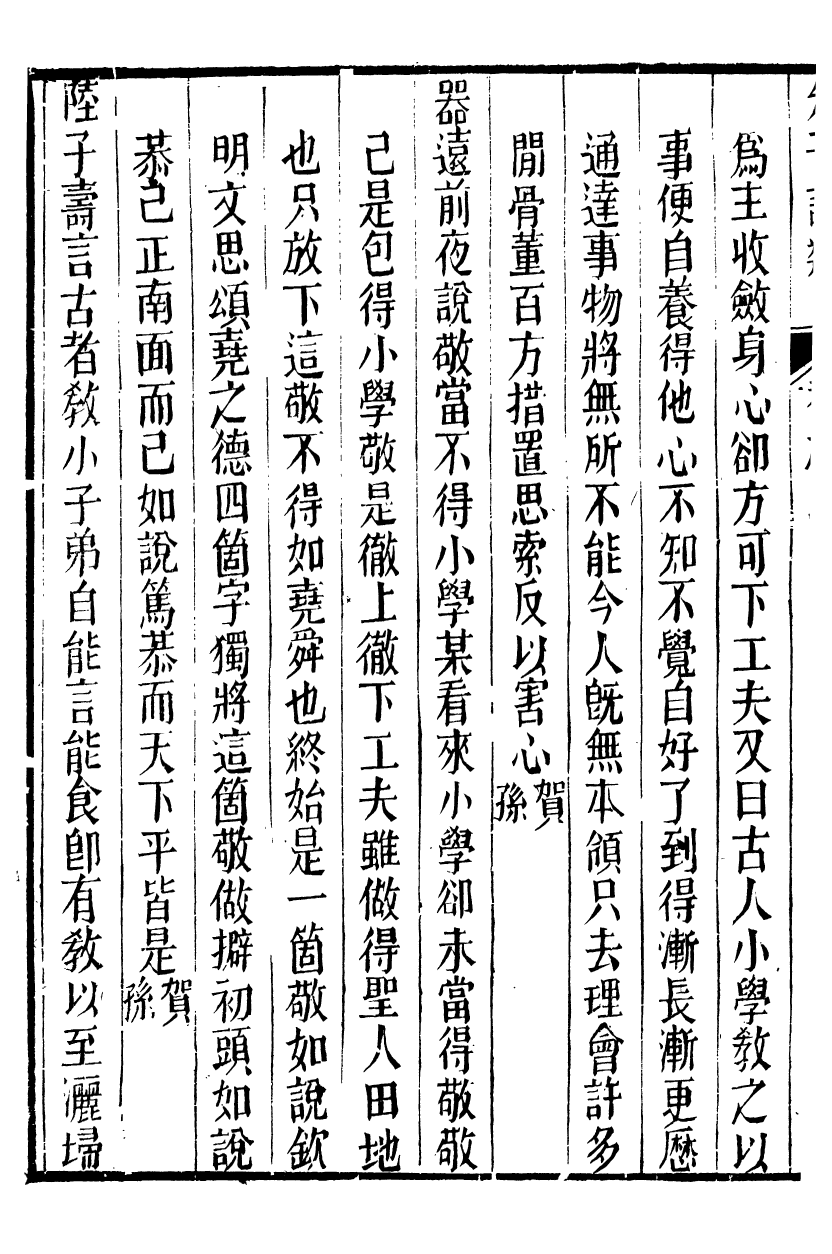 爲主收斂身心卻方可下工夫又曰古人小學教之以
事便自養得他心不知不覺自好了到得漸長漸更歷
通達事物將無所不能今人旣無本領只去理會許多
閒骨董百方措置思索反以害心賀孫
器遠前夜說敬當不得小學某看來小學卻未當得敬敬
己是包得小學敬是徹上徹下工夫雖做得聖人田地
也只放下這敬不得如堯舜也終始是一箇敬如說欽
明文思頌堯之德四箇字獨將這箇敬做擗初頭如說
恭己正南面而已如說篤恭而天下平皆是賀孫
陸子壽言古者敎小子弟自能言能食卽有敎以至灑埽